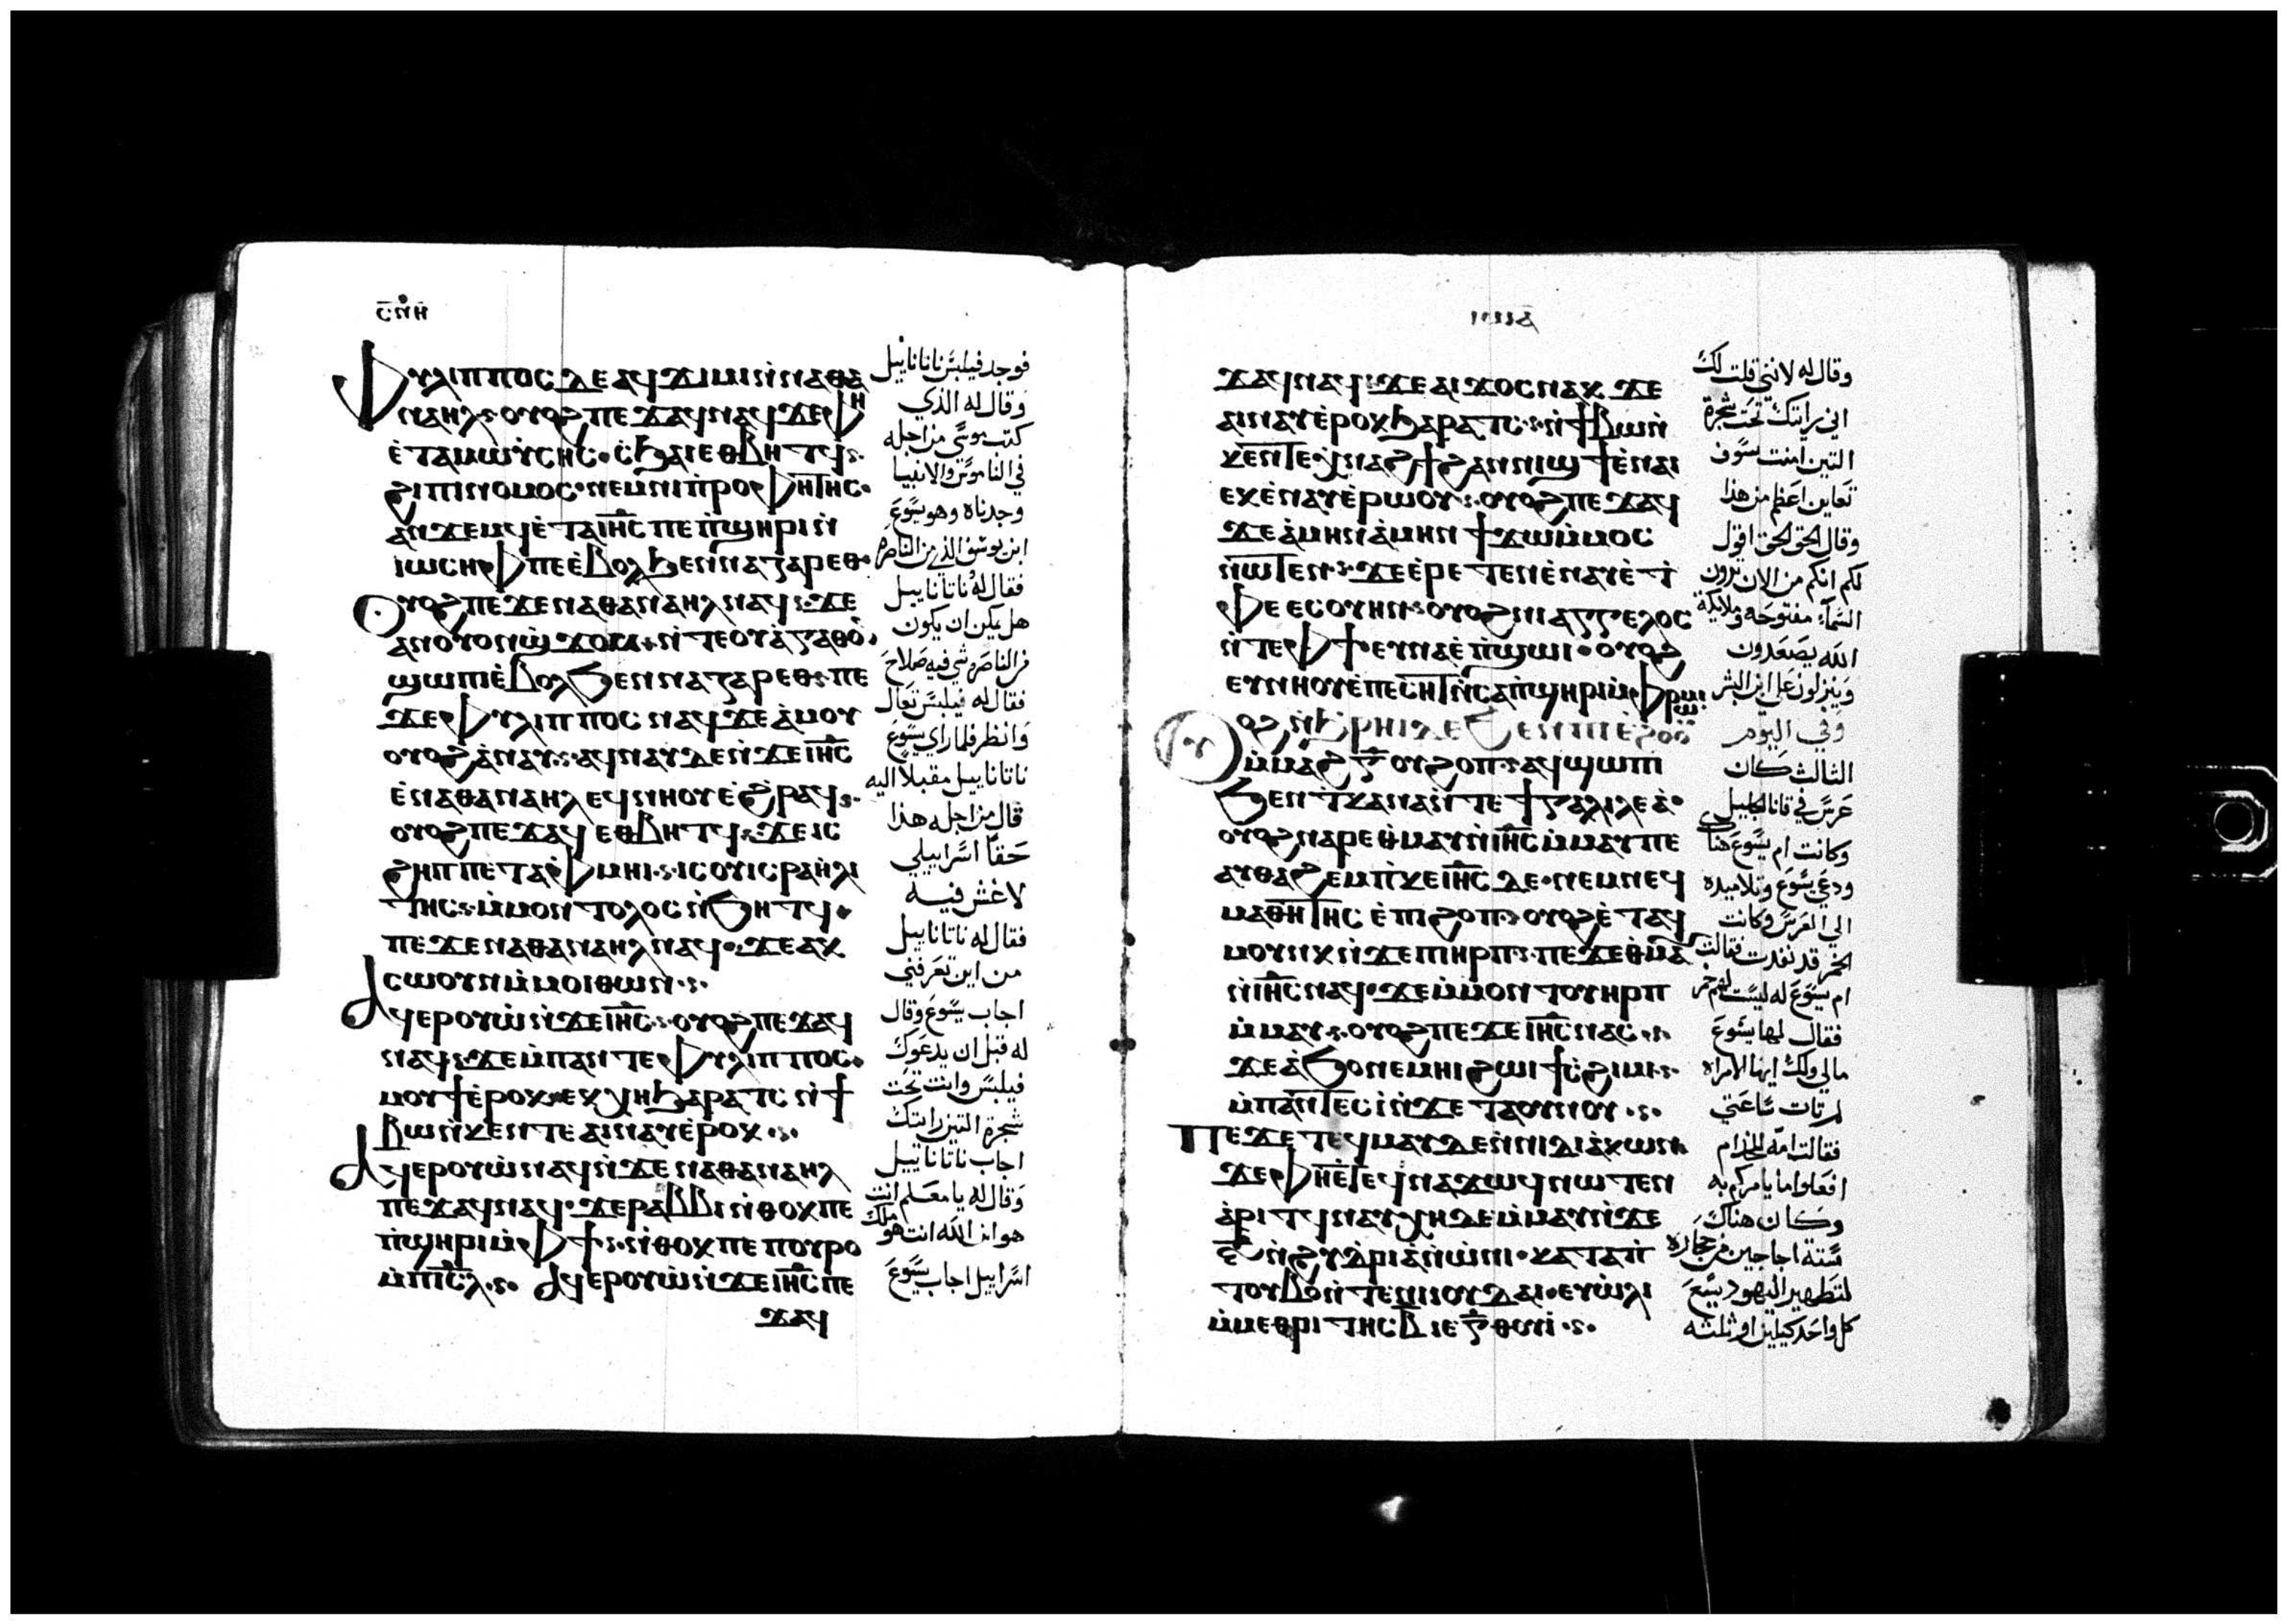 ⲥⲛⲏ
Ⲫⲩⲗⲓⲡⲡⲟⲥ ⲇⲉ ⲁϥϫⲓⲙⲓ ⲛ̀ⲛⲁⲑⲁ
ⲛⲁⲏⲗ ⲟⲩⲟϩ ⲡⲉϫⲁϥ ⲛⲁϥ ϫⲉ ⲫⲏ
ⲉ̀ⲧⲁⲙⲱⲩ̀ⲥⲏⲥ ⲥ̀ϧⲁⲓ ⲉⲑⲃⲏⲧϥ
ϩⲓ ⲡⲓⲛⲟⲙⲟⲥ ⲛⲉⲙ ⲛⲓⲡ̀ⲣⲟⲫⲏⲧⲏⲥ
ⲁⲛϫⲉⲙϥ ⲉ̀ⲧⲁ ⲓⲏ̅ⲥ̅ ⲡⲉ ⲡ̀ϣⲏⲣⲓ ⲛ̀
ⲓⲱⲥⲏⲫ ⲡⲉ ⲉ̀ⲃⲟⲗ ϧⲉⲛ ⲛⲁⲍⲁⲣⲉⲑ
Ⲟⲩⲟϩ ⲡⲉϫⲉ ⲛⲁⲑⲁⲛⲁⲏⲗ ⲛⲁϥ ϫⲉ
ⲁⲛ ⲟⲩⲟⲛ ⲛ̀ϣϫⲟⲙ ⲛ̀ⲧⲉ ⲟⲩⲁ̀ⲅⲁⲑⲟⲛ
ϣⲱⲡⲓ ⲉ̀ⲃⲟⲗ ϧⲉⲛ ⲛⲁⲍⲁⲣⲉⲑ ⲡⲉ
ϫⲉ ⲫⲩⲗⲓⲡⲡⲟⲥ ⲛⲁϥ ϫⲉ ⲁ̀ⲙⲟⲩ
ⲟⲩⲟϩ ⲁ̀ⲛⲁⲩ ⲁϥⲛⲁⲩ ⲇⲉ ⲛ̀ϫⲉ ⲓⲏ̅ⲥ̅
ⲉ̀ⲛⲁⲑⲁⲛⲁⲏⲗ ⲉϥⲛⲏⲟⲩ ⲉ̀ϩⲣⲁϥ
ⲟⲩⲟϩ ⲡⲉϫⲁϥ ⲉⲑⲃⲏⲧϥ ϫⲉ ⲓⲥ
ϩⲏⲡⲡⲉ ⲧⲁⲫⲙⲏⲓ ⲓⲥ ⲟⲩⲓⲥⲣⲁⲏⲗⲓ
ⲧⲏⲥ ⲙ̀ⲙⲟⲛ ⲧⲟⲗⲟⲥ ⲛ̀ϧⲏⲧϥ
ⲡⲉϫⲉ ⲛⲁⲑⲁⲛⲁⲏⲗ ⲛⲁϥ ϫⲉ ⲁⲕ
ⲥⲱⲟⲩⲛ ⲙ̀ⲙⲟⲓ ⲑⲱⲛ
Ⲁϥⲉⲣⲟⲩⲱ̀ ⲛ̀ϫⲉ ⲓⲏ̅ⲥ̅ ⲟⲩⲟϩ ⲡⲉϫⲁϥ
ⲛⲁϥ ϫⲉ ⲙ̀ⲡⲁⲛⲧⲉ ⲫⲩⲗⲓⲡⲡⲟⲥ
ⲙⲟⲩϯ ⲉ̀ⲣⲟⲕ ⲉⲕⲭⲏ ϧⲁⲣⲁⲧⲥ ⲛ̀ϯ
ⲃⲱ ⲛ̀ⲕⲉⲛⲧⲉ ⲁⲓⲛⲁⲩ ⲉ̀ⲣⲟⲕ
Ⲁϥⲉⲣⲟⲩⲱ̀ ⲛⲁϥ ⲛ̀ϫⲉ ⲛⲁⲑⲁⲛⲁⲏⲗ
ⲡⲉϫⲁϥ ⲛⲁϥ ϫⲉ ⲣⲁⲃⲃⲓ ⲛ̀ⲑⲟⲕ ⲡⲉ
ⲡ̀ϣⲏⲣⲓ ⲙ̀ⲫϯ ⲛ̀ⲑⲟⲕ ⲡⲉ ⲡⲟⲩⲣⲟ
ⲙ̀ⲡⲓⲥ̅ⲗ̅ Ⲁϥⲉⲣⲟⲩⲱ̀ ⲛ̀ϫⲉ ⲓⲏ̅ⲥ̅ ⲡⲉ
ϫⲁϥ
فوجد فيلبس ناتانايل
وقال له الذي
كتب موسي من اجله
في الناموس والانبيا
وجدناه وهو يسوع
ابن يوسف الذي من الناصره
فقال له ناتانايل
هل يمكن ان يكون
من الناصره شي فيه صلاح
فقال له فيلبس تعال
وانظر فلما راي يسوع
ناتانايل مقبلا اليه
قال من اجله هذا
حقا اسراييلي
لا غش فيه
فقال له ناتانايل
من اين تعرفني
اجاب يسوع وقال
له قبل ان يدعوك
فيلبس وانت تحت
شجرة التين رايتك
اجاب ناتانايل
وقال له يا معلم انت
هو ابن الله انت هو ملك
اسراييل اجاب يسوع
ϫⲁϥ ⲛⲁϥ ϫⲉ ⲁⲓϫⲟⲥ ⲛⲁⲕ ϫⲉ
ⲁⲓⲛⲁⲩ ⲉ̀ⲣⲟⲕ ϧⲁⲣⲁⲧⲥ ⲛ̀ϯⲃⲱ ⲛ̀
ⲕⲉⲛⲧⲉ ⲭⲛⲁϩϯ ϩⲁⲛⲛⲓϣϯ ⲉ̀ⲛⲁⲓ
ⲉⲕⲉ̀ⲛⲁⲩ ⲉ̀ⲣⲱⲟⲩ ⲟⲩⲟϩ ⲡⲉϫⲁϥ
ϫⲉ ⲁ̀ⲙⲏⲛ ⲁ̀ⲙⲏⲛ ϯϫⲱ ⲙ̀ⲙⲟⲥ
ⲛⲱⲧⲉⲛ ϫⲉ ⲉ̀ⲣⲉⲧⲉⲛⲉ̀ⲛⲁⲩ ⲉ̀ⲧ
ⲫⲉ ⲉⲥⲟⲩⲏⲛ ⲟⲩⲟϩ ⲛⲓⲁⲅⲅⲉⲗⲟⲥ
ⲛ̀ⲧⲉ ⲫϯ ⲉⲩⲛⲁ ⲉ̀ⲡ̀ϣⲱⲓ ⲟⲩⲟϩ
ⲉⲩⲛⲏⲟⲩ ⲉ̀ⲡⲉⲥⲏⲧ ⲛ̀ⲥⲁ ⲡ̀ϣⲏⲣⲓ ⲙ̀ⲫⲣⲱⲙⲓ
Ⲟⲩⲟϩ ⲛ̀ϩⲣⲏⲓ ⲇⲉ ϧⲉⲛ ⲡⲓⲉ̀ϩⲟⲟⲩ
ⲙ̀ⲙⲁϩ ⲅ̅ ⲟⲩϩⲟⲡ ⲁϥϣⲱⲡⲓ
ϧⲉⲛ ⲧⲕⲁⲛⲁ ⲛ̀ⲧⲉ ϯⲅⲁⲗⲓⲗⲉⲁ̀
ⲟⲩⲟϩ ⲛⲁⲣⲉ ⲑⲙⲁⲩ ⲛ̀ⲓⲏ̅ⲥ̅ ⲙ̀ⲙⲁⲩ ⲡⲉ
ⲁⲩⲑⲁϩⲉⲙ ⲡ̀ⲕⲉ ⲓⲏ̅ⲥ̅ ⲇⲉ ⲛⲉⲙ ⲛⲉϥ
ⲙⲁⲑⲏⲧⲏⲥ ⲉ̀ⲡⲓϩⲟⲡ ⲟⲩⲟϩ ⲉ̀ⲧⲁϥ
ⲙⲟⲩⲛⲕ ⲛ̀ϫⲉ ⲡⲓⲏⲣⲡ ⲡⲉϫⲉ ⲑⲙⲁ
ⲛ̀ⲓⲏ̅ⲥ̅ ⲛⲁϥ ϫⲉ ⲙ̀ⲙⲟⲛ ⲧⲟⲩ ⲏⲣⲡ
ⲙ̀ⲙⲁⲩ ⲟⲩⲟϩ ⲡⲉϫⲉ ⲓⲏ̅ⲥ̅ ⲛⲁⲥ
ϫⲉ ⲁ̀ϧⲟ ⲛⲉⲙⲏⲓ ϩⲱⲓ ϯⲥ̀ϩⲓⲙⲓ
ⲙ̀ⲡⲁⲛⲧⲉⲥⲓ̀ ⲛ̀ϫⲉ ⲧⲁⲟⲩⲛⲟⲩ
Ⲡⲉϫⲉ ⲧⲉϥⲙⲁⲩ ⲇⲉ ⲛ̀ⲛⲓⲇⲓⲁ̀ⲕⲱⲛ
ϫⲉ ⲫⲏ ⲉ̀ⲧⲉϥⲛⲁϫⲱϥ ⲛⲱⲧⲉⲛ
ⲁ̀ⲣⲓⲧϥ ⲛⲁⲩⲭⲏ ⲇⲉ ⲙ̀ⲙⲁⲩ ⲛ̀ϫⲉ
ⲋ̅ ⲛ̀ϩⲩⲇⲣⲓⲁ̀ ⲛ̀ⲱ̀ⲛⲓ ⲕⲁⲧⲁ ⲡ̀
ⲧⲟⲩⲃⲟ ⲛ̀ⲧⲉ ⲛⲓⲟⲩⲇⲁⲓ ⲉⲩⲱ̀ⲗⲓ
ⲙ̀ⲙⲉⲑⲣⲓⲧⲏⲥ ⲃ̅ ⲓⲉ ⲅ̅ ⲑⲟⲩⲓ̀
وقال له لانني قلت لك
اني رايتك تحت شجرة
التين امنت سوف
تعاين اعظم من هذا
وقال الحق الحق اقول
لكم انكم من الان ترون
السماء مفتوحه وملايكة
الله يصعدون
وينزلون علي ابن البشر
وفي اليوم
الثالث كان
عرس في قانا الجليل
وكانت ام يسوع هناك
ودعي يسوع وتلاميده
الي العرس وكانت
الخمر قد نفدت فقالت
ام يسوع له ليست لهم خمر
فقال لها يسوع
مالي ولك ايتها الامراه
لم تات ساعتي
فقالت امه للخدام
افعلوا ما يامركم به
وكان هناك
ستة اجاجين من حجاره
لتطهير اليهود يسع
كل واحد كيلين او ثلثه